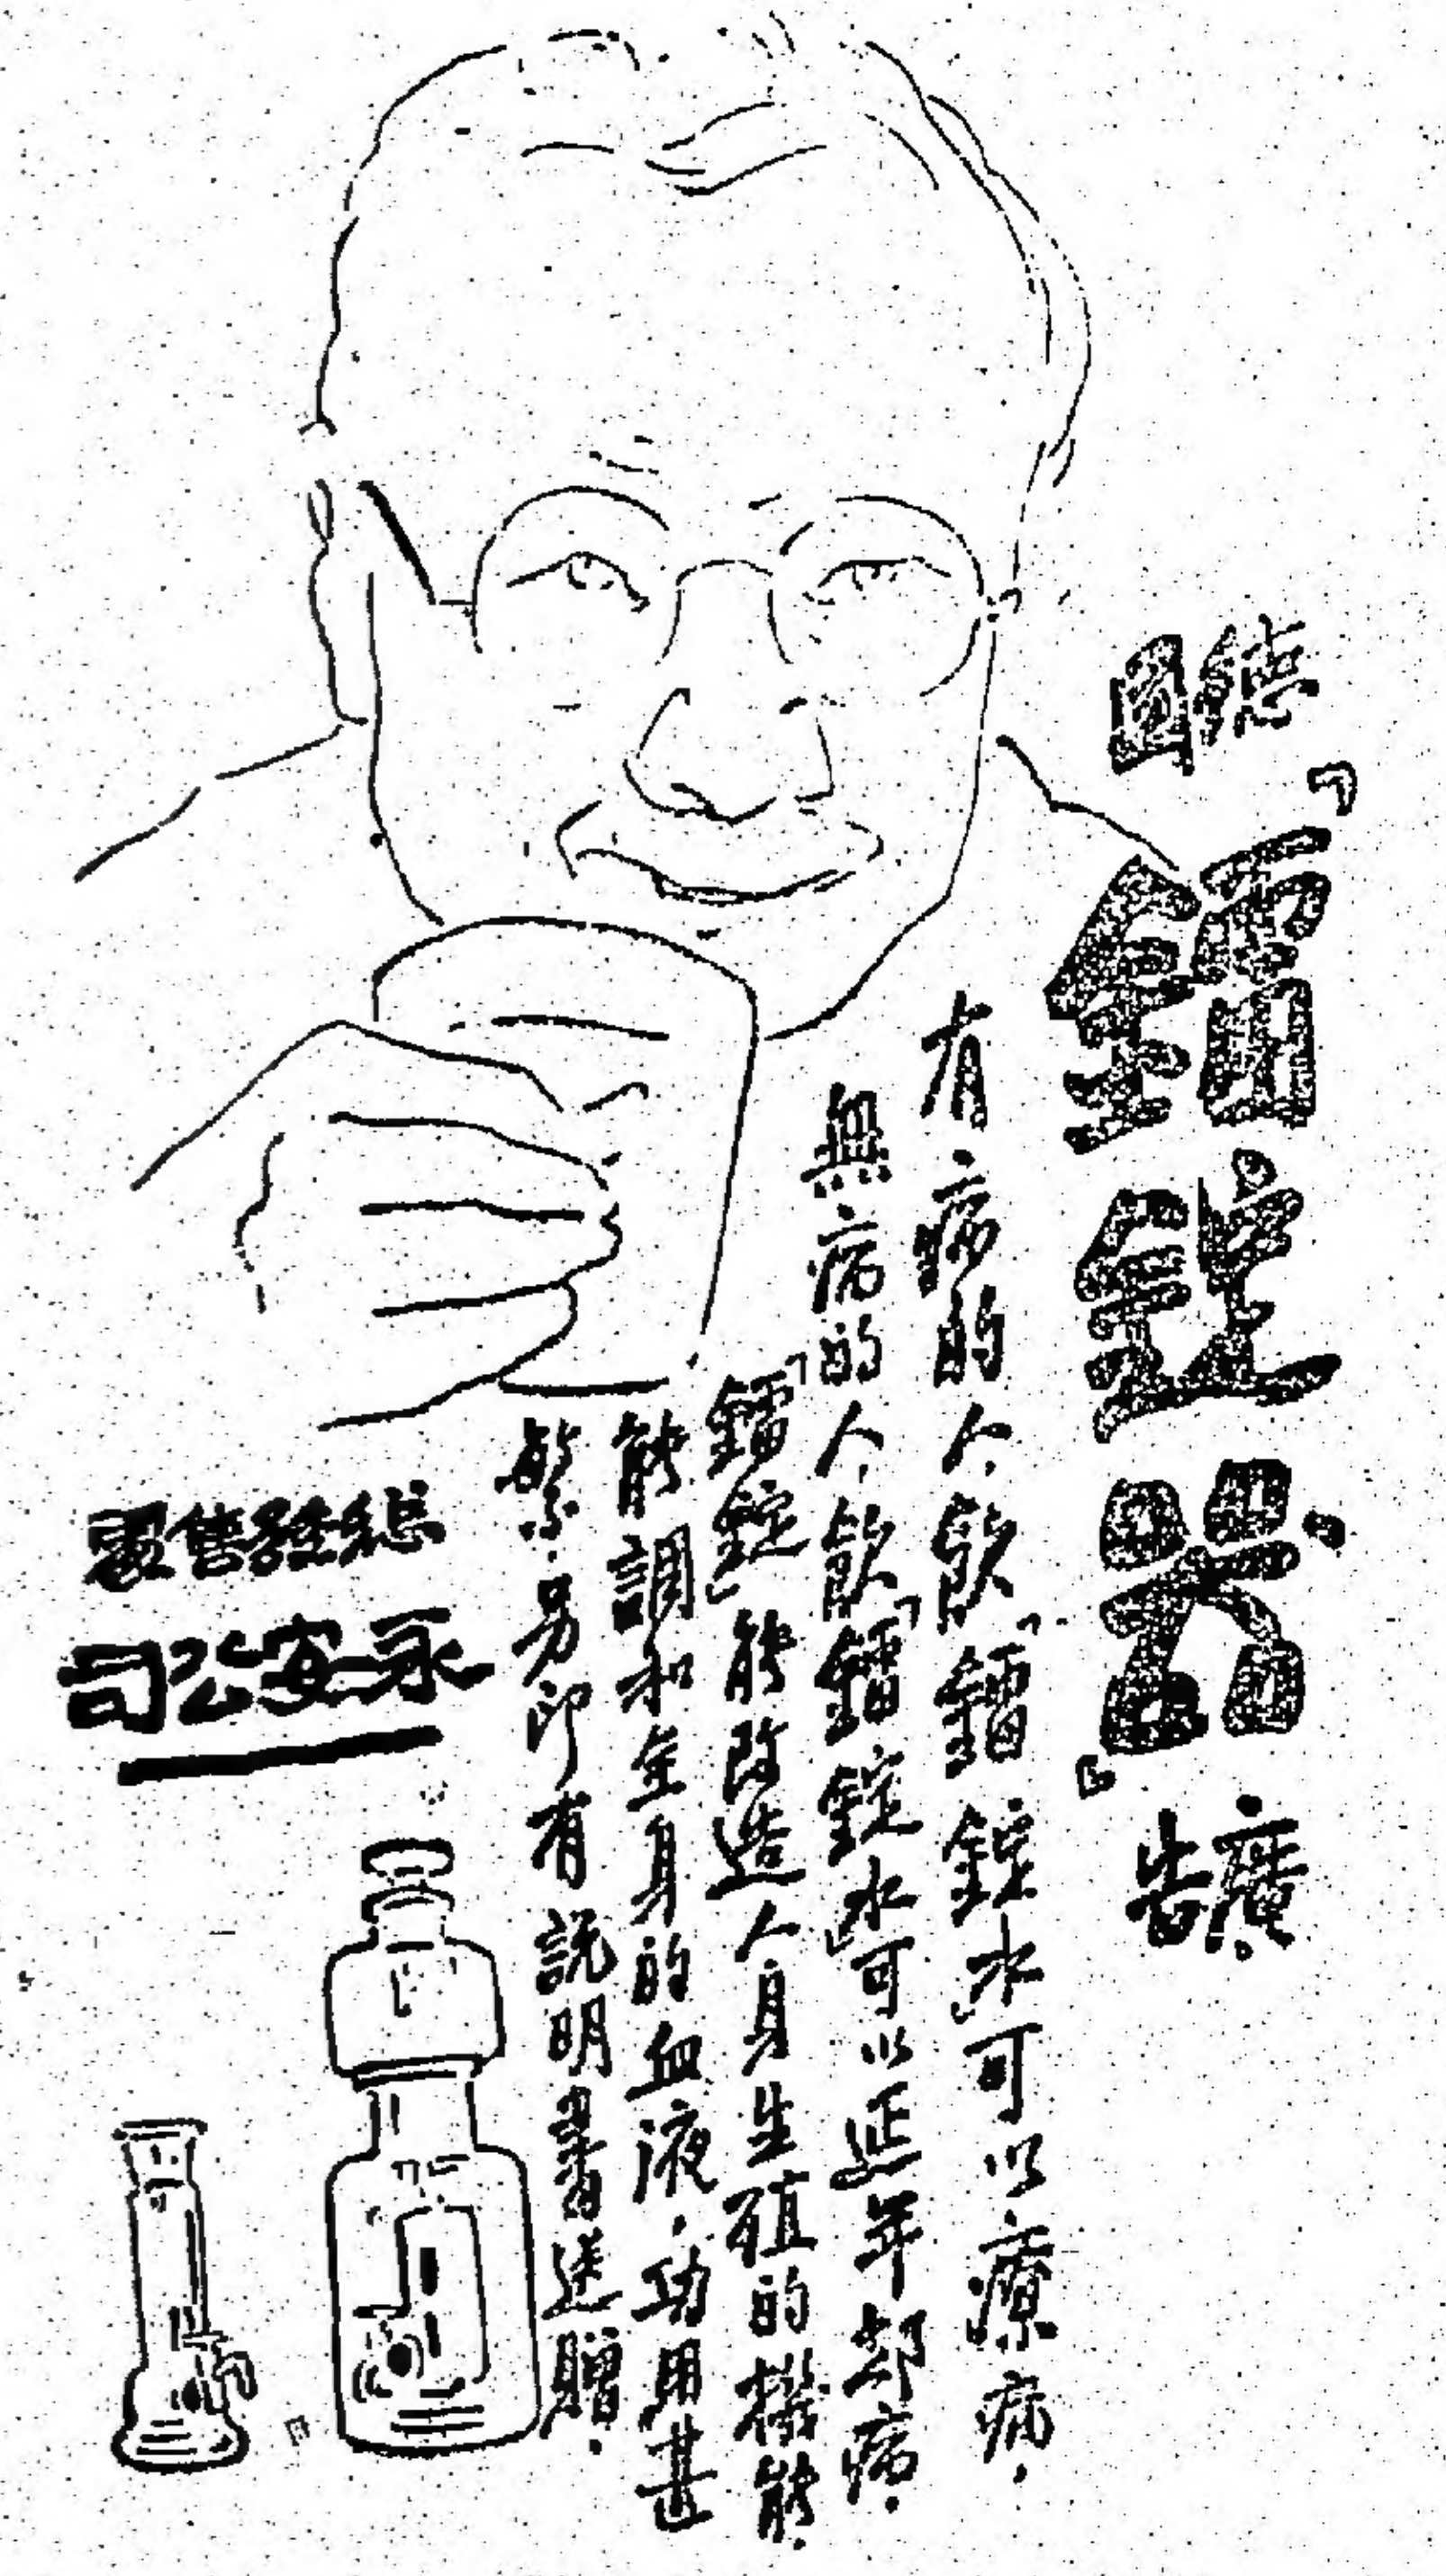 德國
「鐳錠器」
廣告.
有病的人,飲「鐳錠水」可以療病.
無病的人,飲「鐳錠水」可以延年却病.
「鐳錠」能改造人身生殖的機能.
能調和全身的血液.功用甚
繁.另印有説明書送贈.
總經售處
永安公司